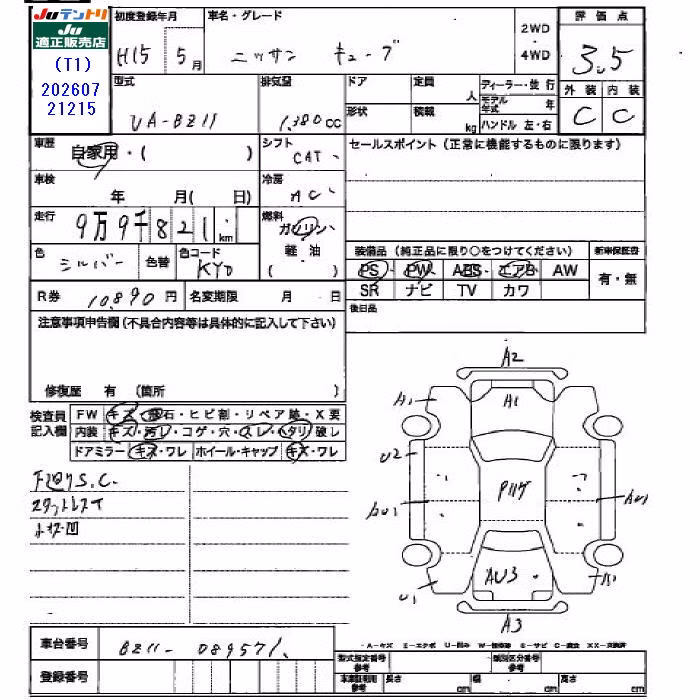 Juテントリ
Ju
適正販売店
(T1)
202607
21215
初度登録年月
H15 5月
車名・グレード
ニッサン キューブ
2WD
4WD
評価点
3.5
外装 内装
C C
型式
UA-BZ11
排気量
1,380cc
ドア
定員
人
形状
積載
kg
ディーラー・並行
モデル年式 年
ハンドル 左・右
車歴
自家用・( )
シフト
CAT
セールスポイント(正常に機能するものに限ります)
車検
年 月( 日)
冷房
AC
走行
9万9千821km
燃料
ガソリン
軽油
( )
色
シルバー
色替
色コード
KY0
装備品(純正品に限り○をつけてください)
新車保証書
PS PW ABS エアB AW
有・無
SR ナビ TV カワ
R券 10890円
名変期限 月 日
後日品
注意事項申告欄(不具合内容等は具体的に記入して下さい)
修復歴 有 (箇所 )
検査員
記入欄
FW キズ・飛石・ヒビ割・リペア跡・X要
内装 キズ・汚レ・コゲ・穴・スレ・ヘタリ・破レ
ドアミラー キズ・ワレ ホイール・キャップ キズ・ワレ
スタットレスT
A2
A1
A1
U2
AU1
AU1
AU3
U1
A1
A3
A-キズ E-エクボ U-凹み W-補修跡 S-サビ C-腐食 XX-交換済
車台番号
BZ11-089571
登録番号
型式指定番号
参考
類別区分番号
参考
車検証明用
参考
長さ cm
幅 cm
高さ cm